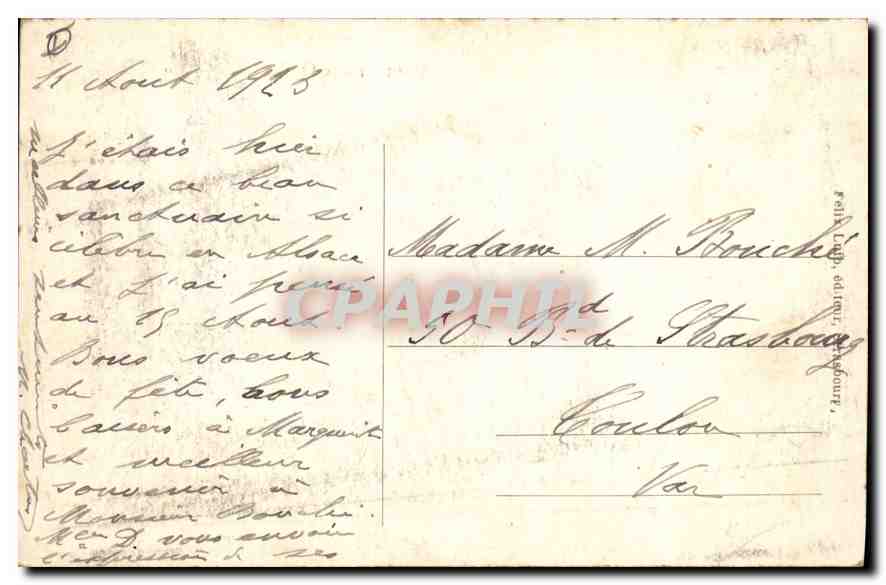 11 Août 1923
J'étais hier
dans ce beau
sanctuaire si
célèbre en Alsace
et j'ai pensé
au 15 Aout.
Bons voeux
de fête, bons
baisers à Marguerite
et meilleur
souvenir à
Monsieur Bouché.
Mcen D. vous envoie
l'expression de ses
meilleurs sentiments
Madame M. Bouché
50 Bd de Strasbourg
Toulon
Var
Félix Luib, éditeur, Strasbourg.
CPAPHIL